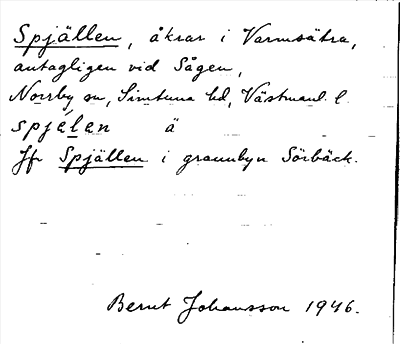 Spjällen, åkrar i Varmsätra,
antagligen vid Sågen,
Norrby sn, Simtuna hd, Västmanl. l.
spjélen ä
Jfr Spjällen i grannbyn Sörbäck.
Bernt Johansson 1946.